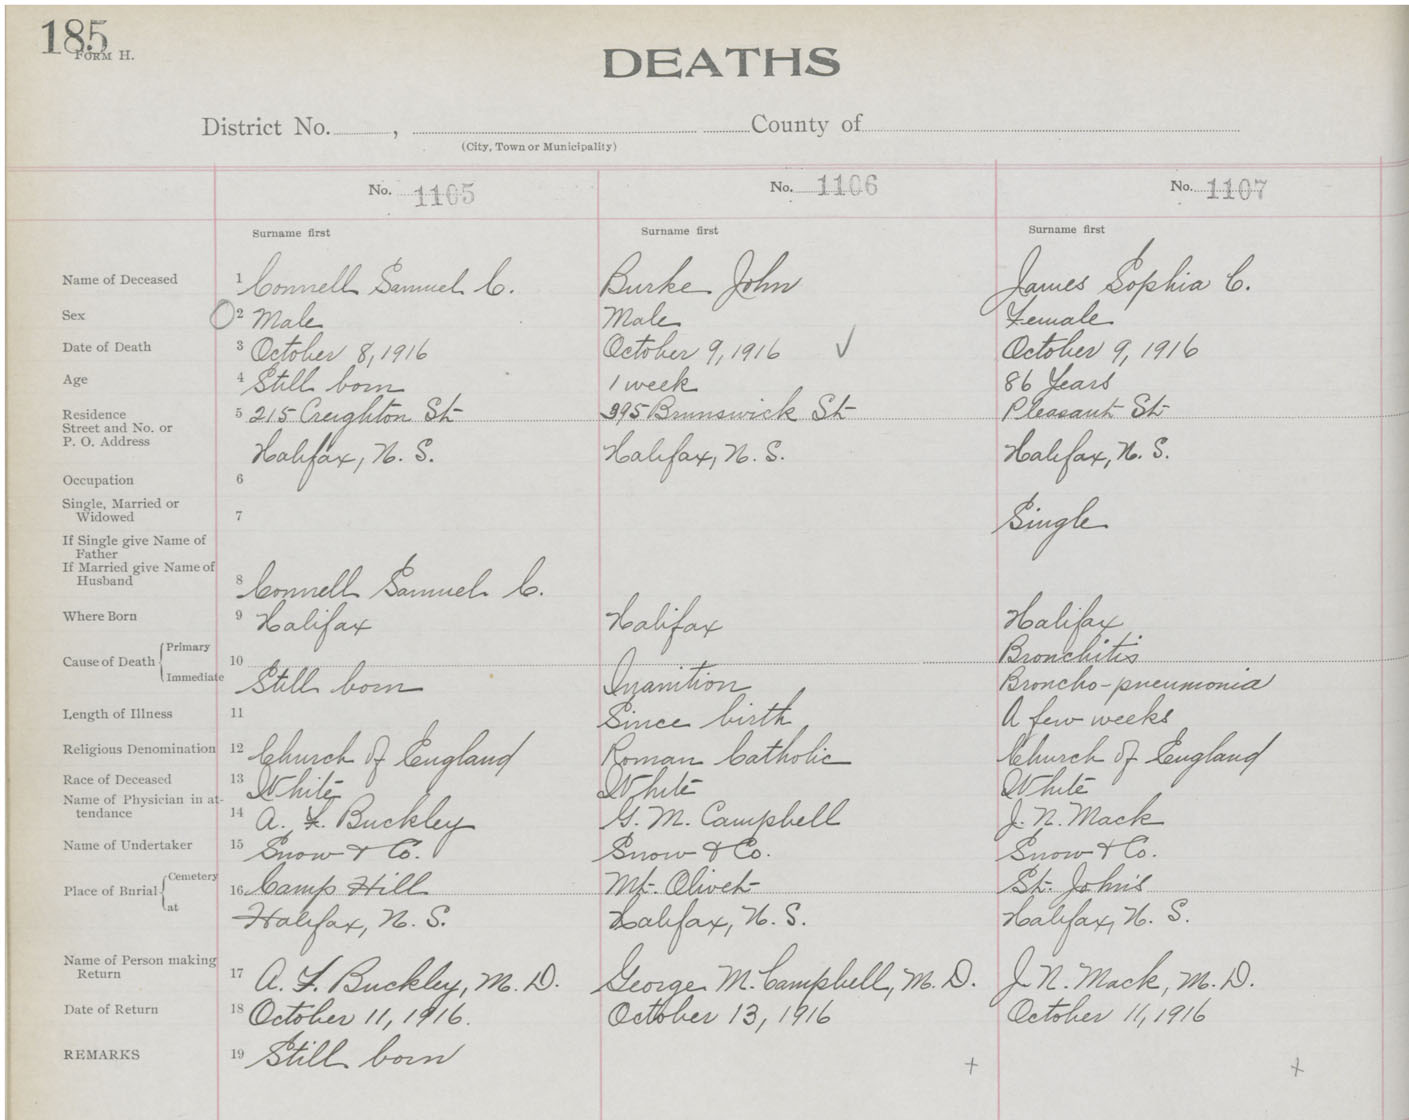 185
FORM H.
DEATHS
District No. , County of
(City, Town or Municipality)
No. 1105 No. 1106 No. 1107
Surname first Surname first Surname first
Name of Deceased 1 Connell Samuel C. Burke John James Sophia C.
Sex 2 Male Male Female
Date of Death 3 October 8, 1916 October 9, 1916 ✓ October 9, 1916
Age 4 Still born 1 week 86 Years
Residence 5 215 Creighton St 395 Brunswick St Pleasant St
Street and No. or
P. O. Address Halifax, N. S. Halifax, N. S. Halifax, N. S.
Occupation 6
Single, Married or
Widowed 7 Single
If Single give Name of
Father
If Married give Name of
Husband 8 Connell Samuel C.
Where Born 9 Halifax Halifax Halifax
Primary Bronchitis
Cause of Death 10
Immediate Still born Inanition Broncho-pneumonia
Length of Illness 11 Since birth A few weeks
Religious Denomination 12 Church of England Roman Catholic Church of England
Race of Deceased 13 White White White
Name of Physician in at-
tendance 14 A. F. Buckley G. M. Campbell J. N. Mack
Name of Undertaker 15 Snow & Co. Snow & Co. Snow & Co.
Cemetery
Place of Burial 16 Camp Hill Mt. Olivet St. John's
at Halifax, N. S. Halifax, N. S. Halifax, N. S.
Name of Person making
Return 17 A. F. Buckley, M. D. George M. Campbell, M. D. J. N. Mack, M. D.
Date of Return 18 October 11, 1916. October 13, 1916 October 11, 1916
REMARKS 19 Still born
+ +